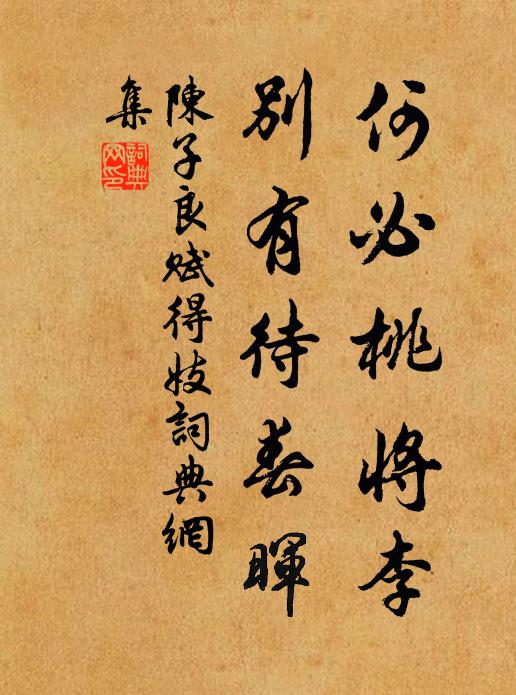 何必桃将李
別有待春暉
陳子良賦得妓詞典網
集
詞典
网印